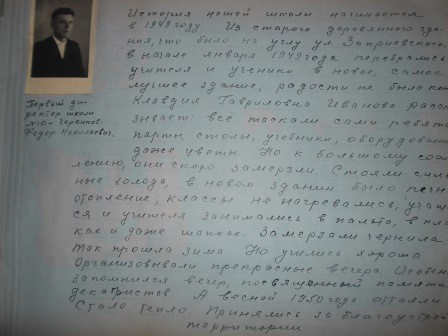 История нашей школы начинается
в 1949 году Из старого деревянного зда-
ния, что было на углу ул
в начале января 1949 года перебрались
учителя и ученики в новое, самое
лучшее здание, радости не было кон
Клавдия Гавриловна Иванова расс
зывает: всё таскали сами ребята
парты, столы, учебники, оборудовани
даже цветы Но к большому сож
лению, они скоро замерзли Стояли силь
ные холода, в новом здании было печн
отопление, классы не нагревались, учащ
ся и учителя занимались в пальто, в пла
ках и даже шапках. Замерзали чернила.
Так прошла зима Но учились хорошо
Организовывали прекрасные вечера. Особен
запомнился вечер, посвященный памяти
декабристов А весной 1950 года оттаяли
Стало тепло. Принялись за благоустрой
территории
Первый ди-
ректор школы
Федор Николаевич.